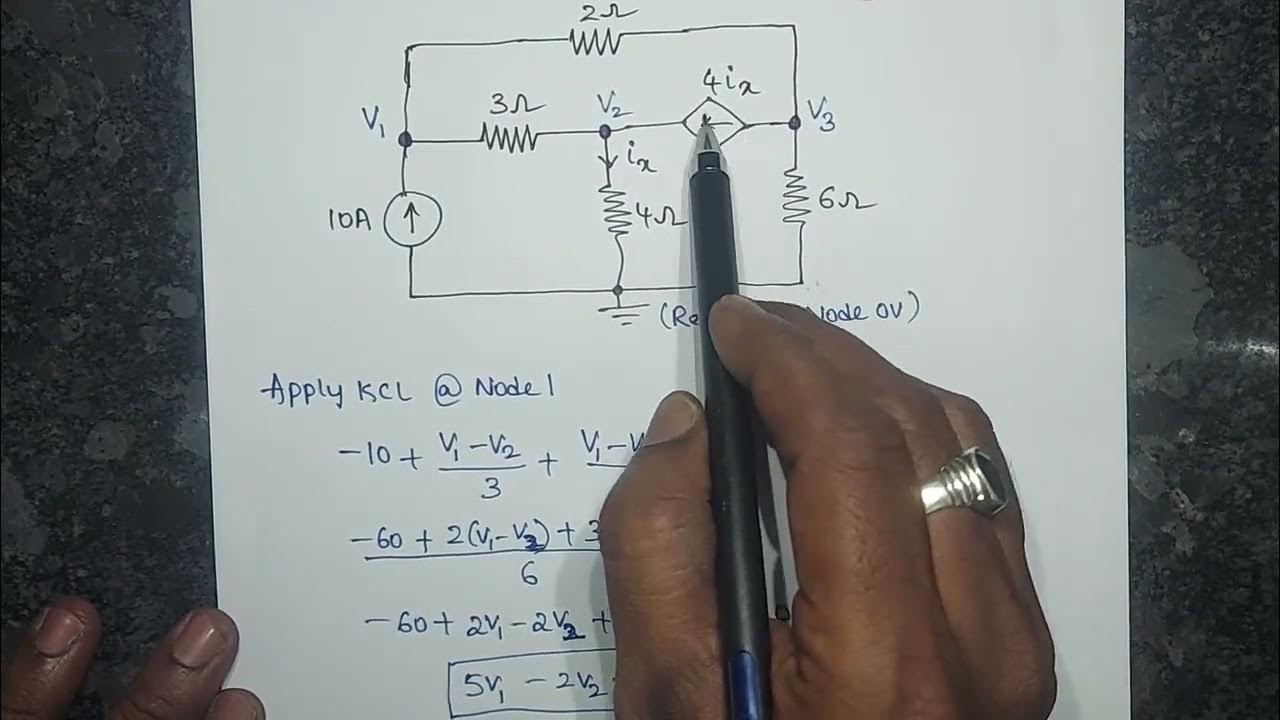 2Ω
4ix
3Ω
V2
V1
V3
ix
10A
4Ω
6Ω
Node 0V)
Apply KCL @ Node 1
-10 + (V1 - V2)/3 + V1 -
-60 + 2(V1 - V2) + 3
6
-60 + 2V1 - 2V2 +
5V1 - 2V2